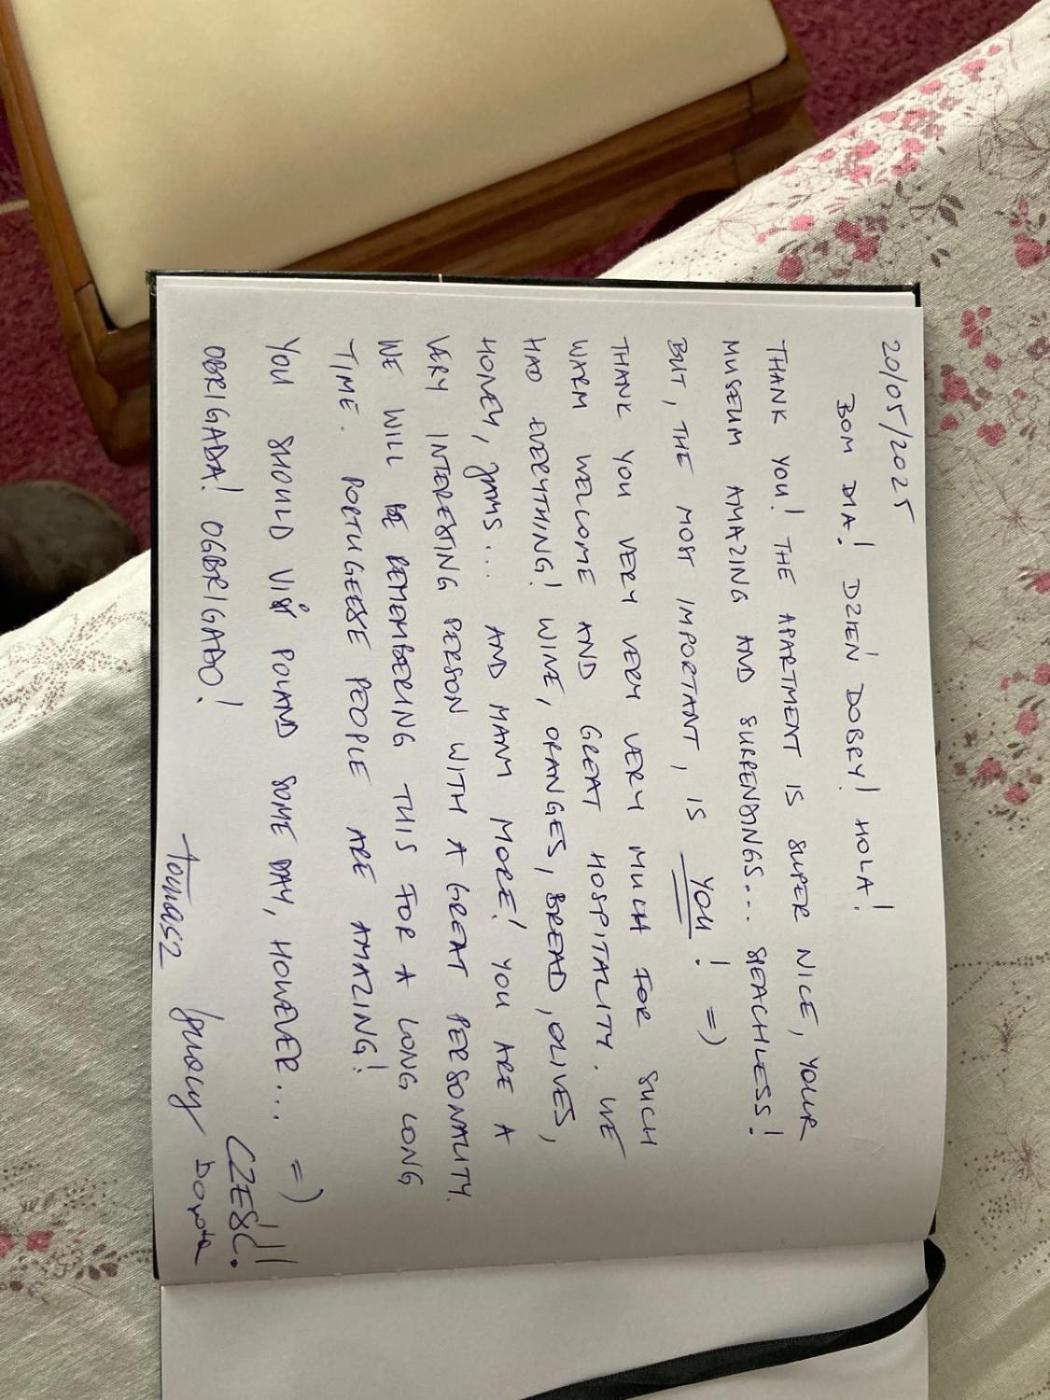 20/05/2025
BOM DIA! DZIEŃ DOBRY! HOLA!
THANK YOU! THE APARTMENT IS SUPER NICE, YOUR
MUSEUM AMAZING AND SURPENSINGS... SPEACHLESS!
BUT, THE MOST IMPORTANT, IS YOU! =)
THANK YOU VERY VERY VERY VERY MUCH FOR SUCH
WARM WELCOME AND GREAT HOSPITALITY. WE
HAD EVERYTHING! WINE, ORANGES, BREAD, OLIVES,
HONEY, JAMS... AND MANY MORE! YOU ARE A
VERY INTERESTING PERSON WITH A GREAT PERSONALITY.
WE WILL BE REMEMBERING THIS FOR A LONG LONG
TIME. PORTUGEESE PEOPLE ARE AMAZING!
YOU SHOULD VISIT POLAND SOME DAY, HOWEVER... =)
OBRIGADA! OGBRIGADO! CZEŚĆ!!
Tomasz Dorota